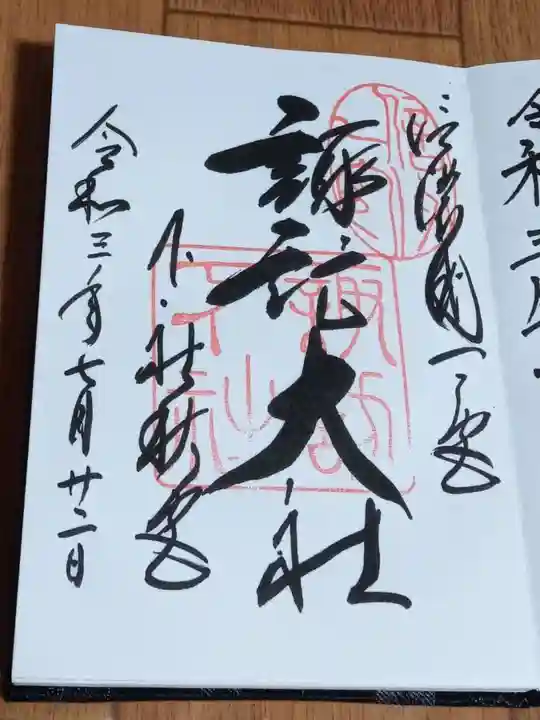 令和三年
信濃國一之宮
諏訪大社
下社秋宮
令和三年七月廿二日